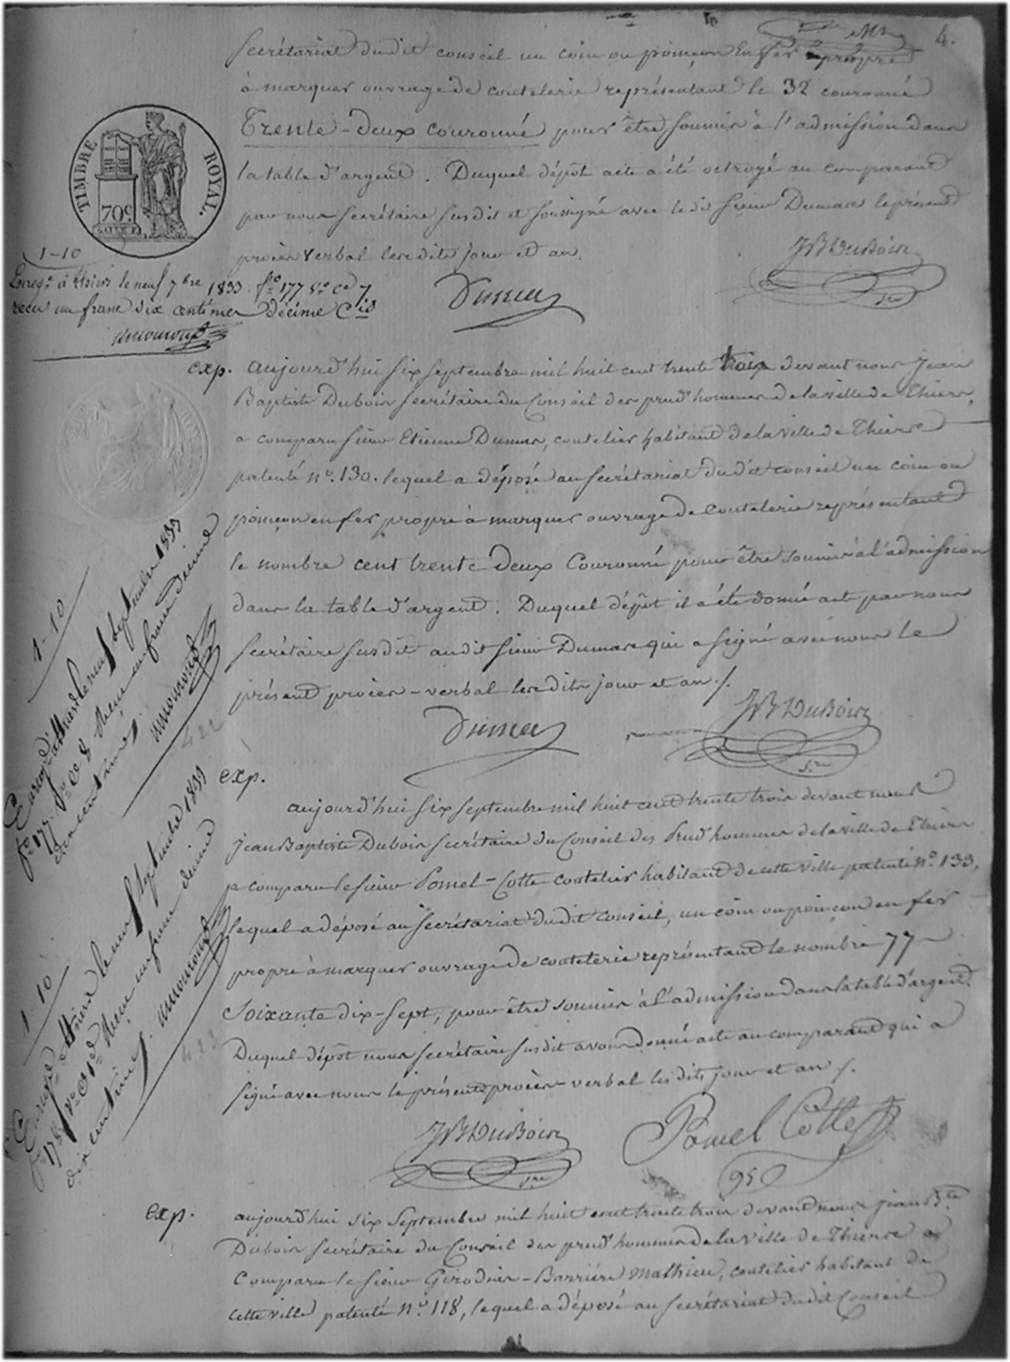 4.
secrétariat dudit conseil un coin ou poinçon en fer propre
à marquer ouvrage de coutelerie représentant le 32 couronné
Trente-deux couronné pour être soumis à l'admission dans
la table d'argent. Duquel dépôt acte a été octroyé au comparant
par nous secrétaire susdit et soussigné avec le dit sieur Dumas le présent
procès verbal lesdits jour et an.
TIMBRE ROYAL.
70c
1-10
Enregé à Thiers le neuf 7bre 1833 fo 177 vo Cd 7
reçu un franc dix centimes décime Cis
JB DuBoir
Sre
Dumas
exp. aujourd'hui six septembre mil huit cent trente trois devant nous Jean
Baptiste Duboir secrétaire du Conseil des prud'hommes de la ville de Thiers,
a comparu sieur Etienne Dumas, coutelier habitant de la ville de Thiers
patenté no. 130. lequel a déposé au secrétariat dudit conseil un coin ou
poinçon en fer propre à marquer ouvrage de coutelerie représentant
le nombre cent trente deux Couronné pour être soumis à l'admission
dans la table d'argent. Duquel dépôt il a été donné acte par nous
secrétaire susdit audit sieur Dumas qui a signé avec nous le
présent procès-verbal lesdits jour et an /.
1-10
Enregé à Thiers le neuf septembre 1833
fo 177 vo Cd 8 Reçu un franc décime
dix centimes
422
Dumas
JB DuBoir
Sre
exp.
aujourd'hui six septembre mil huit cent trente trois devant nous
Jean Baptiste Duboir secrétaire du Conseil des Prud'hommes de la ville de Thiers
a comparu le sieur Pomel-Cotte coutelier habitant de cette ville patenté no. 133,
lequel a déposé au secrétariat dudit conseil, un coin ou poinçon en fer
propre à marquer ouvrage de coutelerie représentant le nombre 77
Soixante dix-sept, pour être soumis à l'admission dans la table d'argent.
Duquel dépôt nous secrétaire susdit avons donné acte au comparant qui a
signé avec nous le présent procès verbal les dits jour et an /.
1-10
Enregé à Thiers le neuf septembre 1833
fo 178 ro Cd 1 Reçu un franc décime
dix centimes
423
JB DuBoir
Sre
Pomel Cotte
95
exp. aujourd'hui six Septembre mil huit cent trente trois devant nous Jean Bte
Duboir secrétaire du Conseil des prud'hommes de la ville de Thiers a
Comparu le sieur Girodias-Barrière Mathieu, coutelier habitant de
cette ville patenté No. 118, lequel a déposé au secrétariat dudit Conseil